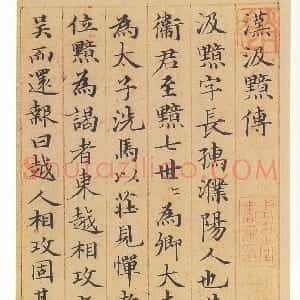 漢汲黯傳
汲黯字長孺濮陽人也
衛君至黯七世〻為卿大
為太子洗馬以莊見憚
位黯為謁者東越相攻
吳而還報曰越人相攻固其